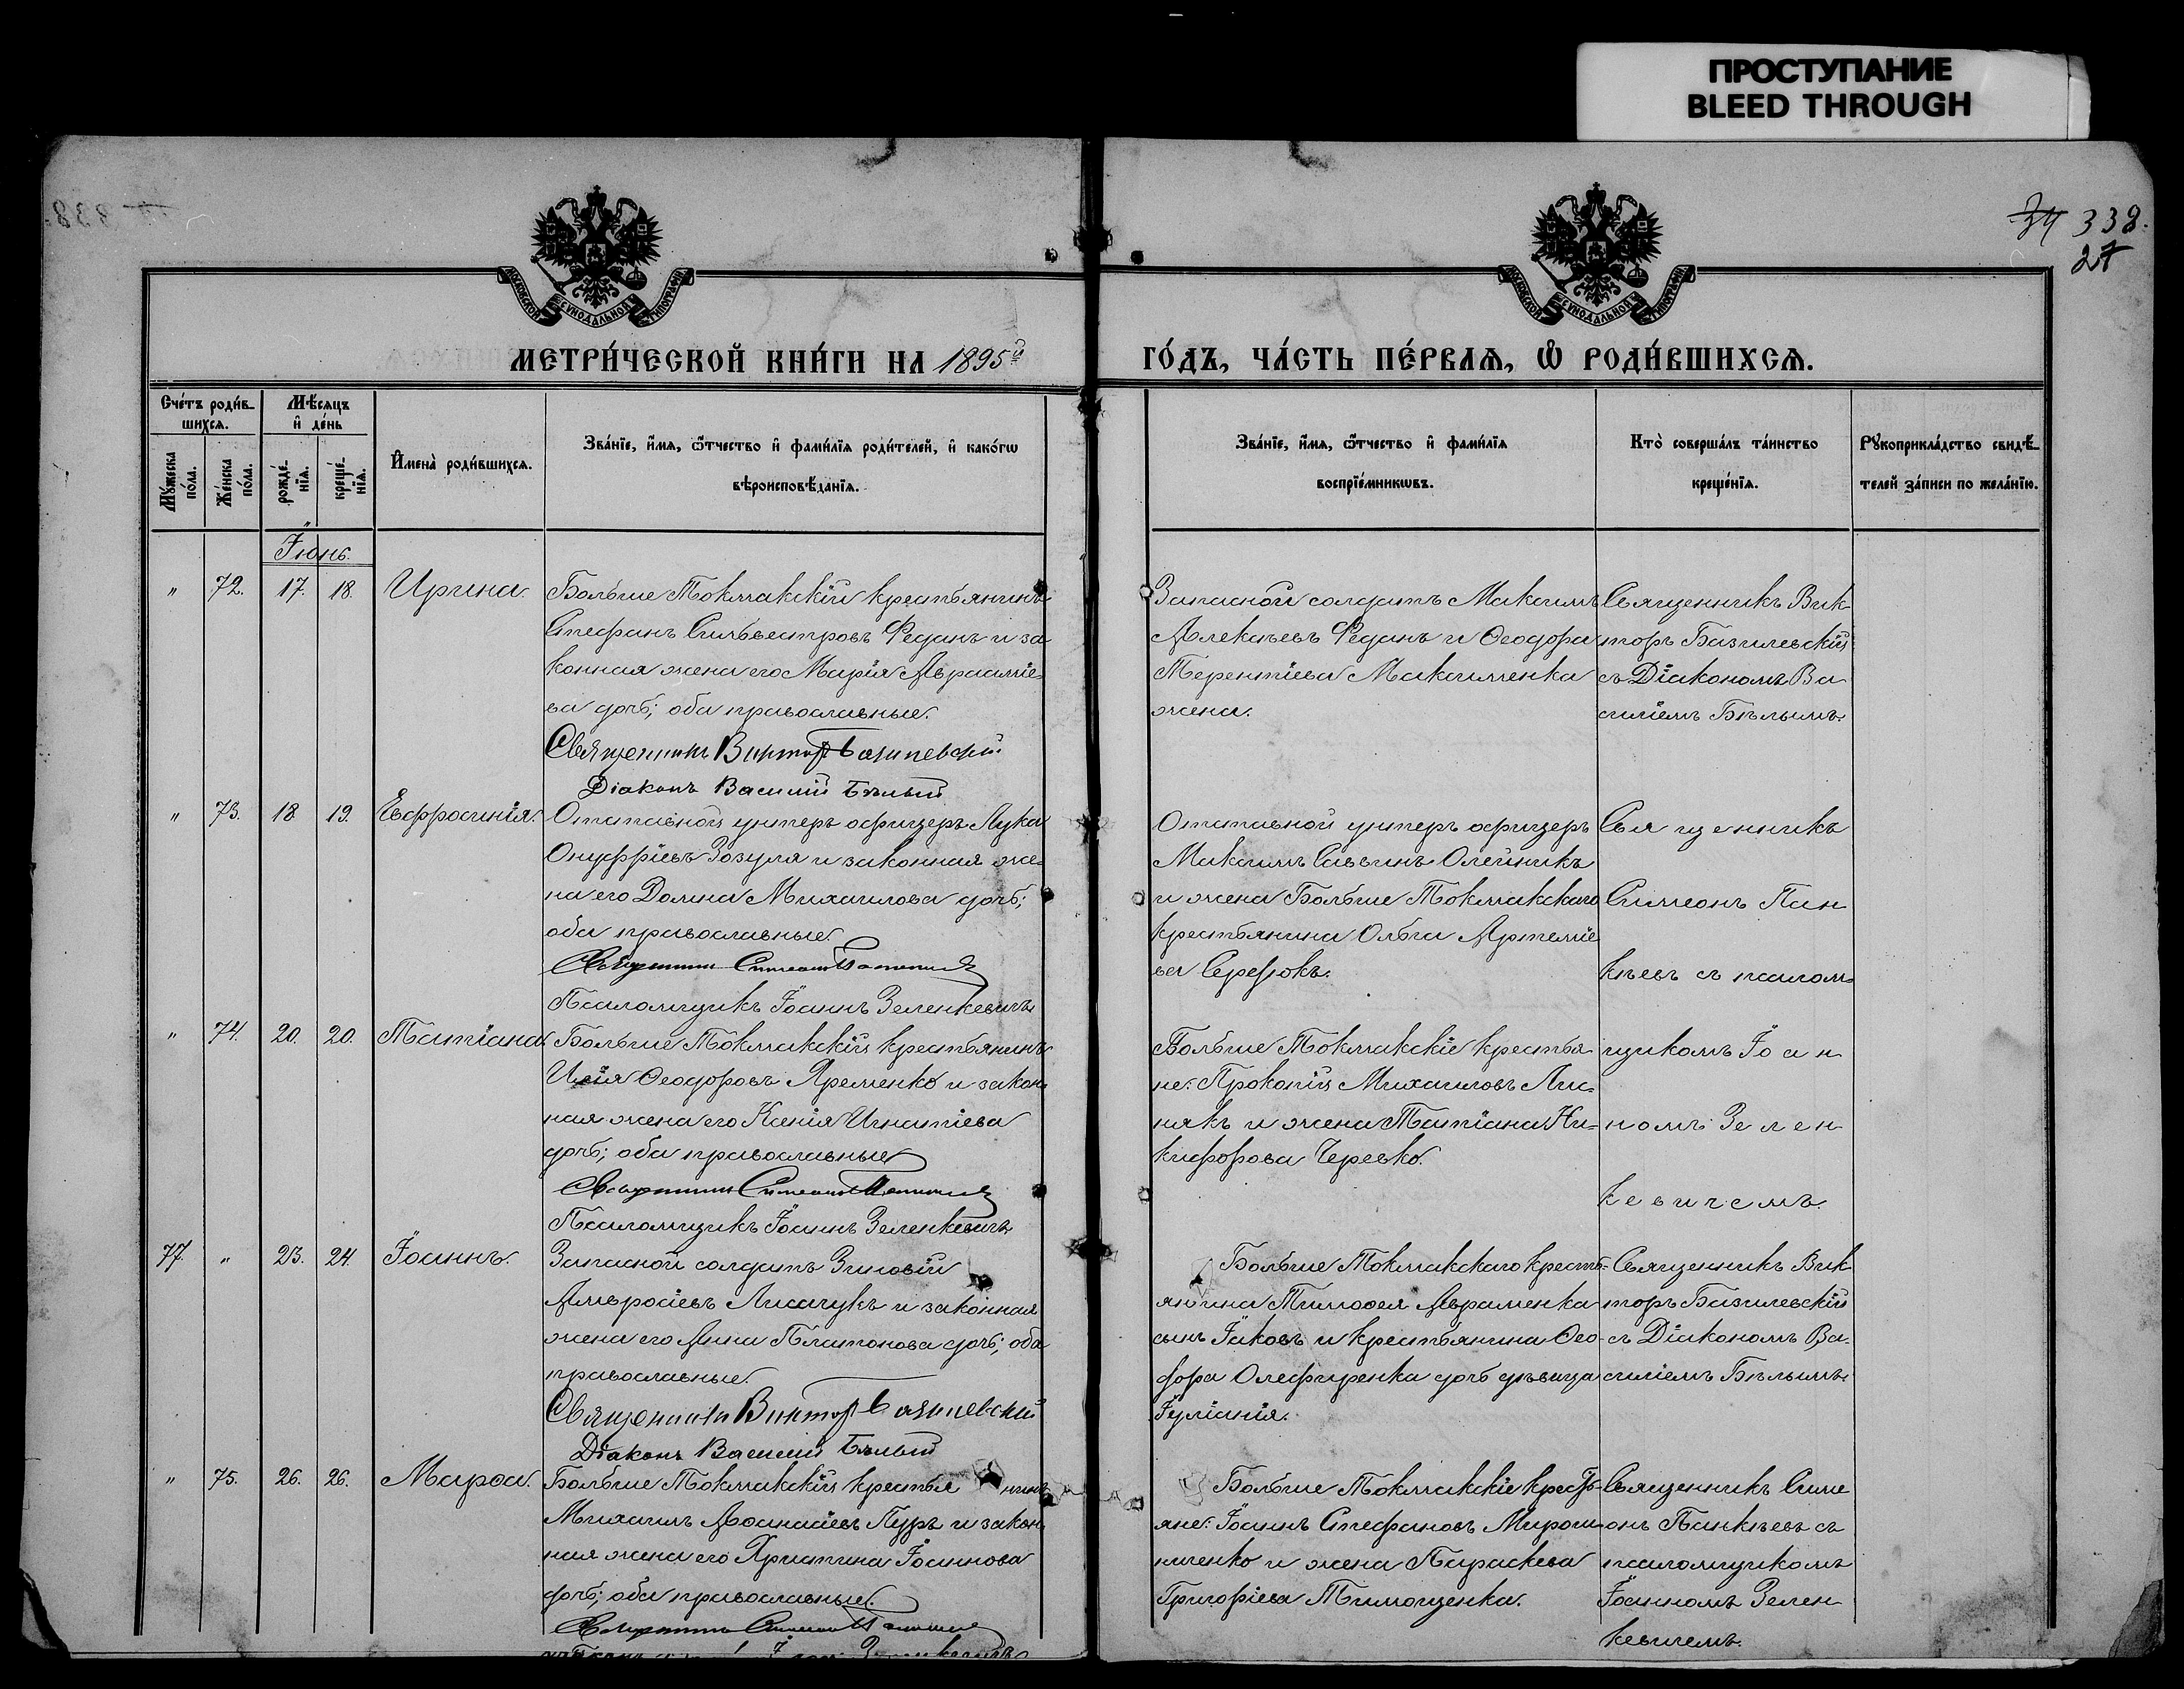 ПРОСТУПАНИЕ
BLEED THROUGH
34 338.
27
МОСКОВСКОЙ СѴНОДАЛЬНОЙ ТИПОГРАФІИ
МОСКОВСКОЙ СѴНОДАЛЬНОЙ ТИПОГРАФІИ
МЕТРИ́ЧЕСКОЙ КНИ́ГИ НА 1895й
ГО́ДЪ, ЧА́СТЬ ПЕ́РВАѦ, Ѿ РОДИ́ВШИХСѦ.
Сче́тъ роди́в-
шихсѧ.
Мꙋ́жеска
по́ла.
Же́нска
по́ла.
Мѣ́сѧцъ
и҆ де́нь
рожде́-
нїѧ.
креще́-
нїѧ.
И҆мена̀ роди́вшихсѧ.
Зва́нїе, и҆́мѧ, ѻ҆́тчество и҆ фами́лїѧ роди́телей, и҆ како́гѡ
вѣроисповѣ́данїѧ.
Зва́нїе, и҆́мѧ, ѻ҆́тчество и҆ фами́лїѧ
воспрїе́мникѡвъ.
Кто̀ соверша́лъ та́инство
креще́нїѧ.
Рꙋкоприкла́дство свидѣ́-
телей за́писи по жела́нїю.
Іюнь.
" 72. 17. 18. Ирина.
Больше Токмакскій крестьянинъ
Стефанъ Сильвестровъ Феданъ и за
конная жена его Марія Авраміе-
ва дочь; оба православные.
Священникъ Викторъ Базилевскій
Діаконъ Василій Бѣлый
Запасной солдатъ Максимъ
Алексѣевъ Феданъ и Ѳеодора
Терентіева Максименка
жена.
Священникъ Вик
торъ Базилевскій
съ Діакономъ Ва
силіемъ Бѣлымъ.
" 73. 18 19. Евфросинія.
Отставной унтеръ офицеръ Лука
Онуфріевъ Зозуля и законная же-
на его Домна Михаилова дочь;
оба православные.
Священникъ Симеонъ
Псаломщикъ Іоаннъ Зеленкевичъ
Отставной унтеръ офицеръ
Максимъ Саввинъ Олейникъ
и жена Больше Токмакскаго
крестьянина Ольга Артеміе
ва Сердюкъ.
Священникъ
Симеонъ Пан
кѣевъ съ псалом
щикомъ Іоан
номъ Зелен
кевичемъ.
" 74. 20. 20. Татіана
Больше Токмакскій крестьянинъ
Илія Ѳеодоровъ Яременко и закон
ная жена его Ксенія Игнатіева
дочь; оба православные
Священникъ Симеонъ
Псаломщикъ Іоаннъ Зеленкевичъ
Больше Токмакскіе крестья
не: Прокопій Михаиловъ Лис-
някъ и жена Татіана Ни-
кифорова Черевко.
77. " 23. 24. Іоаннъ.
Запасной солдатъ Зиновій
Амвросіевъ Лисачукъ и законная
жена его Анна Платонова дочь; оба
православные.
Священникъ Викторъ Базилевскій
Діаконъ Василій Бѣлый
Больше Токмакскаго кресть-
янина Тимоѳея Авраменка
сынъ Іаковъ и крестьянина Ѳео-
дора Олефиренка дочь дѣвица
Іуліанія.
Священникъ Вик
торъ Базилевскій
съ Діакономъ Ва-
силіемъ Бѣлымъ.
" 75. 26. 26. Марѳа.
Больше Токмакскій крестья нинъ
Михаилъ Аѳанасіевъ Пуръ и закон
ная жена его Христина Іоаннова
дочь; оба православные.
Священникъ Симеонъ
Больше Токмакскіе кресть-
яне: Іоаннъ Стефановъ Мирош-
ниченко и жена Параскева
Григоріева Тимощенка.
Священникъ Симе
онъ Панкѣевъ съ
псаломщикомъ
Іоанномъ Зелен
кевичемъ.